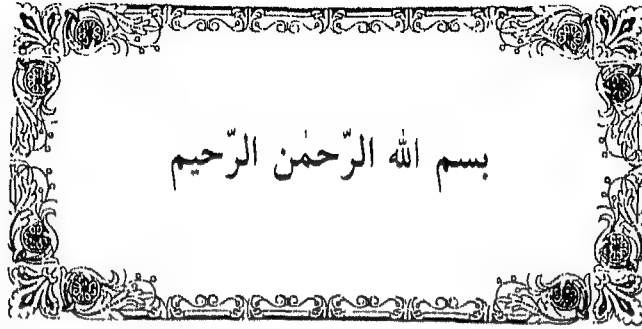 بسم الله الرّحمٰن الرّحيم